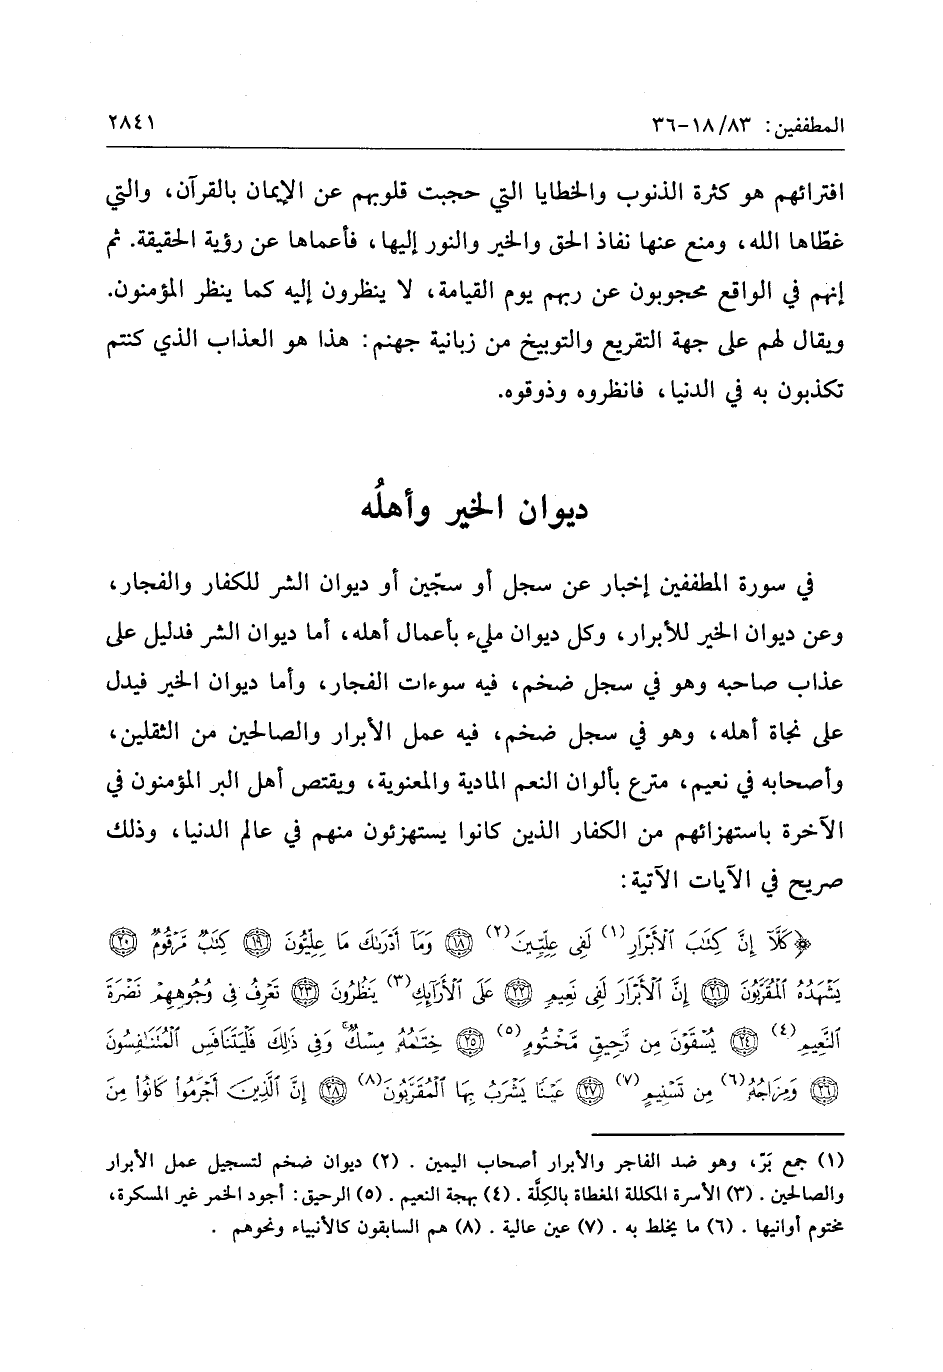 المطففين: ٨٣/ ١٨-٣٦ ٢٨٤١
افترائهم هو كثرة الذنوب والخطايا التي حجبت قلوبهم عن الإيمان بالقرآن، والتي
غطّاها الله، ومنع عنها نفاذ الحق والخير والنور إليها، فأعماها عن رؤية الحقيقة. ثم
إنهم في الواقع محجوبون عن ربهم يوم القيامة، لا ينظرون إليه كما ينظر المؤمنون.
ويقال لهم على جهة التقريع والتوبيخ من زبانية جهنم: هذا هو العذاب الذي كنتم
تكذبون به في الدنيا، فانظروه وذوقوه.
ديوان الخير وأهلُه
في سورة المطففين إخبار عن سجل أو سجّين أو ديوان الشر للكفار والفجار،
وعن ديوان الخير للأبرار، وكل ديوان مليء بأعمال أهله، أما ديوان الشر فدليل على
عذاب صاحبه وهو في سجل ضخم، فيه سوءات الفجار، وأما ديوان الخير فيدل
على نجاة أهله، وهو في سجل ضخم، فيه عمل الأبرار والصالحين من الثقلين،
وأصحابه في نعيم، مترع بألوان النعم المادية والمعنوية، ويقتص أهل البر المؤمنون في
الآخرة باستهزائهم من الكفار الذين كانوا يستهزئون منهم في عالم الدنيا، وذلك
صريح في الآيات الآتية:
﴿كَلَّآ إِنَّ كِتَٰبَ ٱلْأَبْرَارِ(١) لَفِى عِلِّيِّينَ(٢) ﴿١٨﴾ وَمَآ أَدْرَىٰكَ مَا عِلِّيُّونَ ﴿١٩﴾ كِتَٰبٌ مَّرْقُومٌ ﴿٢٠﴾
يَشْهَدُهُ ٱلْمُقَرَّبُونَ ﴿٢١﴾ إِنَّ ٱلْأَبْرَارَ لَفِى نَعِيمٍ ﴿٢٢﴾ عَلَى ٱلْأَرَآئِكِ(٣) يَنظُرُونَ ﴿٢٣﴾ تَعْرِفُ فِى وُجُوهِهِمْ نَضْرَةَ
ٱلنَّعِيمِ(٤) ﴿٢٤﴾ يُسْقَوْنَ مِن رَّحِيقٍ مَّخْتُومٍ(٥) ﴿٢٥﴾ خِتَٰمُهُۥ مِسْكٌ ۚ وَفِى ذَٰلِكَ فَلْيَتَنَافَسِ ٱلْمُتَنَٰفِسُونَ
﴿٢٦﴾ وَمِزَاجُهُۥ(٦) مِن تَسْنِيمٍ(٧) ﴿٢٧﴾ عَيْنًا يَشْرَبُ بِهَا ٱلْمُقَرَّبُونَ(٨) ﴿٢٨﴾ إِنَّ ٱلَّذِينَ أَجْرَمُوا۟ كَانُوا۟ مِنَ
(١) جمع بَرّ، وهو ضد الفاجر والأبرار أصحاب اليمين . (٢) ديوان ضخم لتسجيل عمل الأبرار
والصالحين . (٣) الأسرة المكللة المغطاة بالكِلَّة . (٤) بهجة النعيم . (٥) الرحيق: أجود الخمر غير المسكرة،
مختوم أوانيها . (٦) ما يخلط به . (٧) عين عالية . (٨) هم السابقون كالأنبياء ونحوهم .